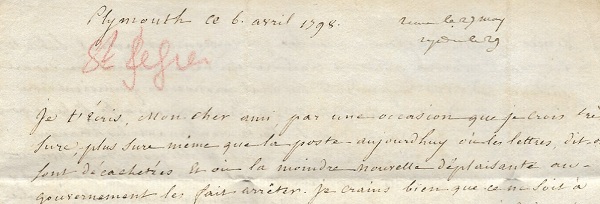 Plymouth ce 6 avril 1798.
recue le 27 may
le 29
St
Je t'ecris, Mon cher ami, par une occasion que je crois trè
sure, plus sure même que la poste aujourdhuy où les lettres, dit-o
sont décachetées et où la moindre nouvelle déplaisante au
gouvernement les fait arrêter. Je crains bien que ce ne soit à